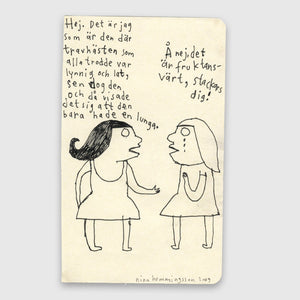 Hej. Det är jag
som är den där
travhästen som
alla trodde var
lynnig och lat,
sen dog den
och då visade
det sig att den
bara hade en lunga.
Å nej, det
är fruktans-
värt, stackars
dig!
nina hemmingsson